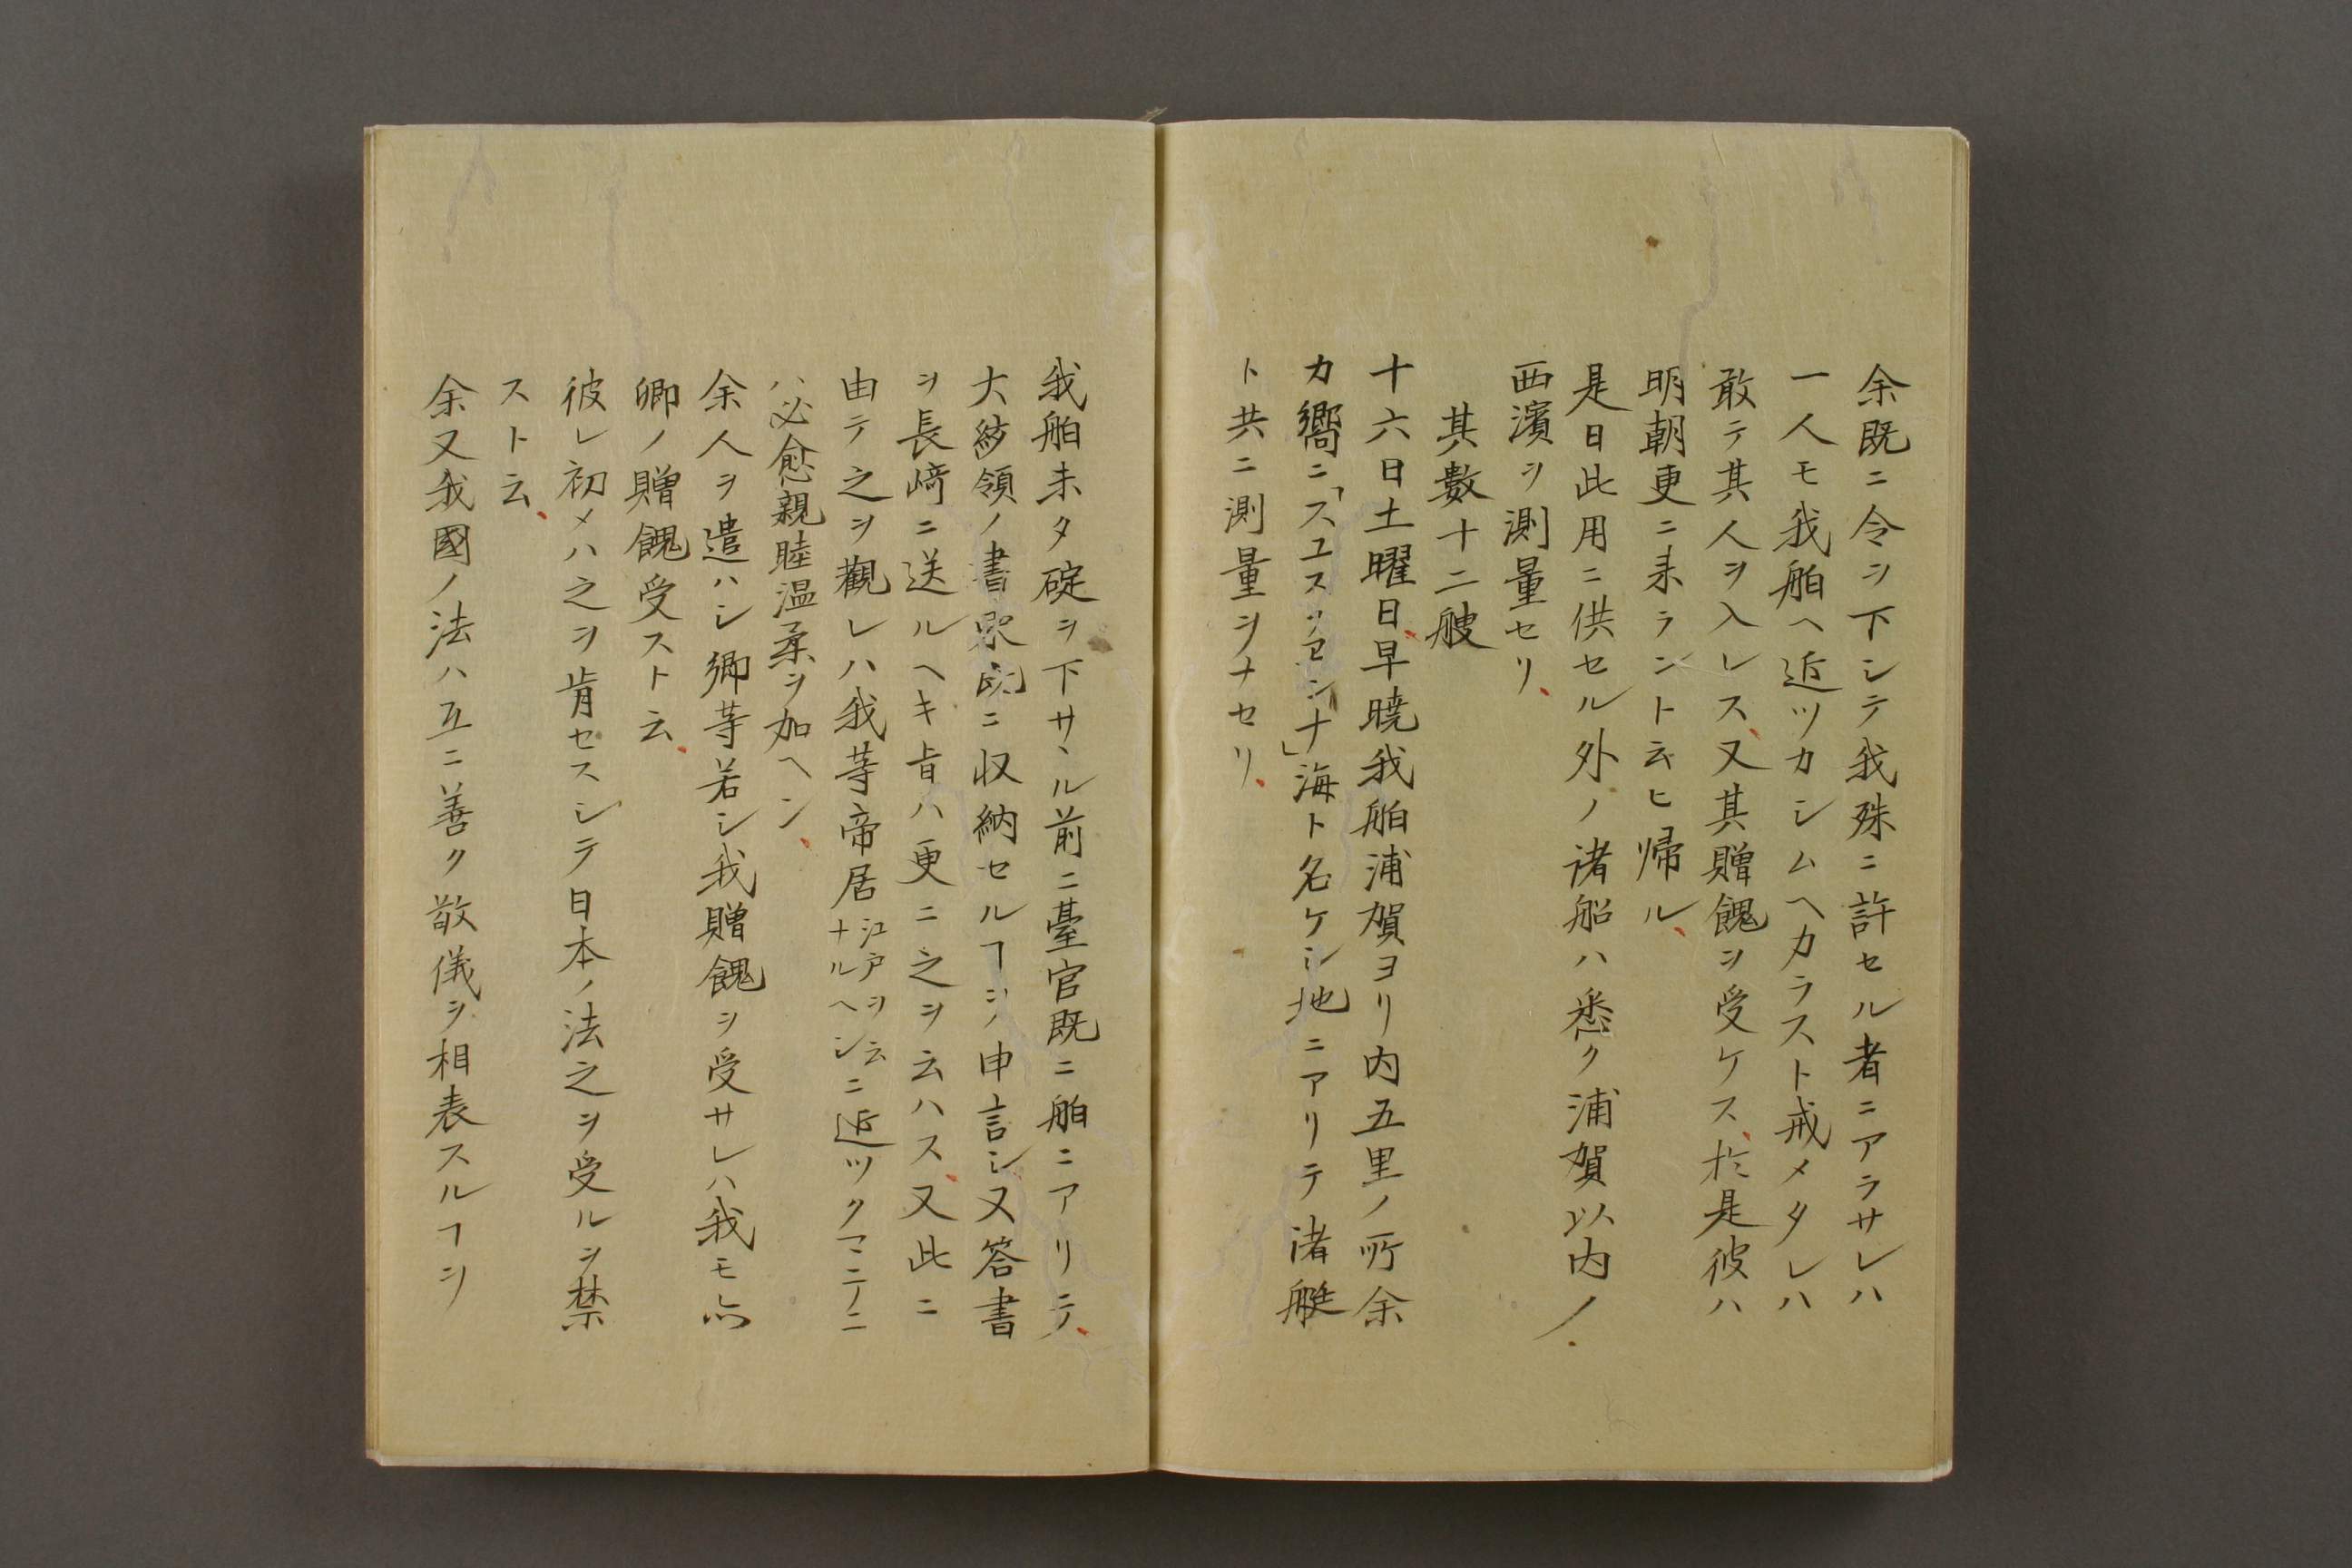 余既ニ令シ下シテ我殊ニ許セル者ニアラサレハ
一人モ我舶ヘ近ツカシムヘカラスト戒メタレハ
敢テ其人ヲ入レス、又其贈餽ヲ受ケス、於是彼ハ
明朝更ニ来ラント云ヒ帰ル、
是日此用ニ供セル外ノ諸船ハ悉ク浦賀以内ノ
西濱ヲ測量セリ、
其數十二艘
十六日土曜日、早暁我舶浦賀ヨリ内五里ノ所余
カ嚮ニ「スユスクァンナ」海ト名ケシ地ニアリテ諸艇
ト共ニ測量ヲナセリ、
我舶未タ碇ヲ下サヽル前ニ臺官既ニ舶ニアリテ、
大統領ノ書既ニ収納セルヿヲ申言シ又答書
ヲ長﨑ニ送ルヘキ旨ハ更ニ之ヲ云ハス、又此ニ
由テ之ヲ觀レハ我等帝居江戸ヲ云ナルヘシニ近ツクマニ〳〵ニ
ハ必愈親睦温柔ヲ加ヘン、
余人ヲ遣ハシ卿等若シ我贈餽ヲ受サレハ我モ亦
卿ノ贈餽受スト云、
彼レ初メハ之ヲ肯セスシテ日本ノ法之ヲ受ルヲ禁
スト云、
余又我國ノ法ハ互ニ善ク敬儀ヲ相表スルヿヲ